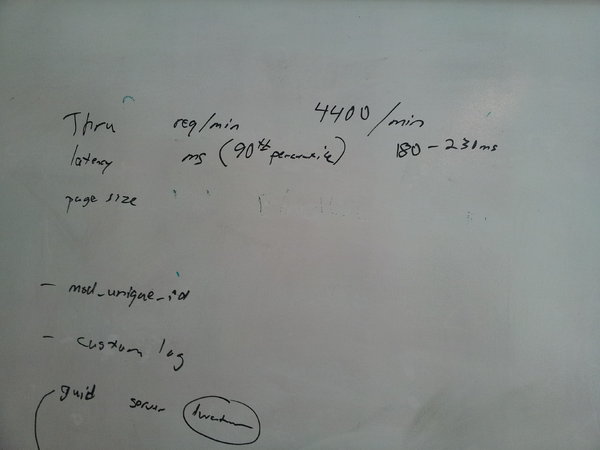 Thru req/min 4400/min
latency ms (90th percentile) 180-230ms
page size
- mod_unique_id
- custom log
guid server